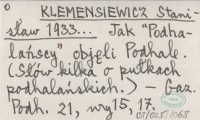 KLEMENSIEWICZ Stani-
sław 1933... Jak "Podha-
lańscy" objęli Podhale.
(Słów kilka o pułkach
podhalańskich.) — Gaz.
Podh. 21, nry 15, 17.
BT/0237/1068